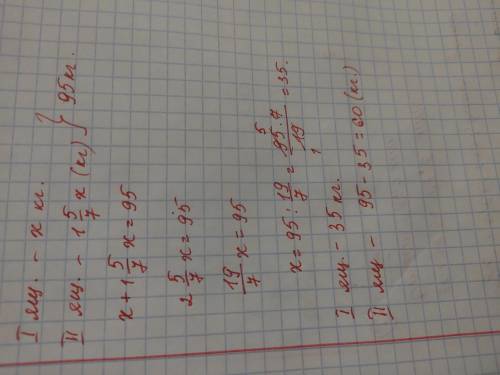 I ящ. - x кг.
II ящ. - 1 5/7 x (кг) } 95 кг.
x + 1 5/7 x = 95
2 5/7 x = 95
19/7 x = 95
x = 95 : 19/7 = 95 · 7 / 19 = 35.
5
1
I ящ. - 35 кг.
II ящ - 95 - 35 = 60 (кг.)